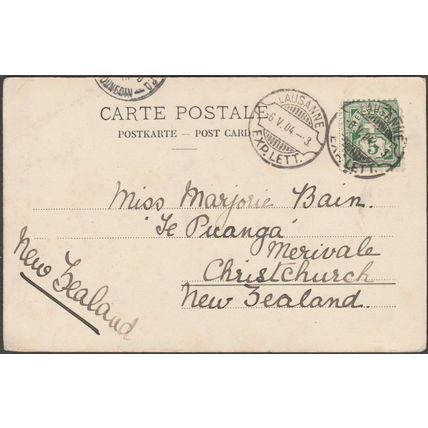 DUNEDIN
CARTE POSTALE
POSTKARTE – POST CARD
LAUSANNE
6 V. 04 – 3
EXP. LETT.
LAUSANNE
EXP. LETT.
5
Miss Marjorie Bain.
"Te Puanga"
Merivale
Christchurch
New Zealand.
New Zealand